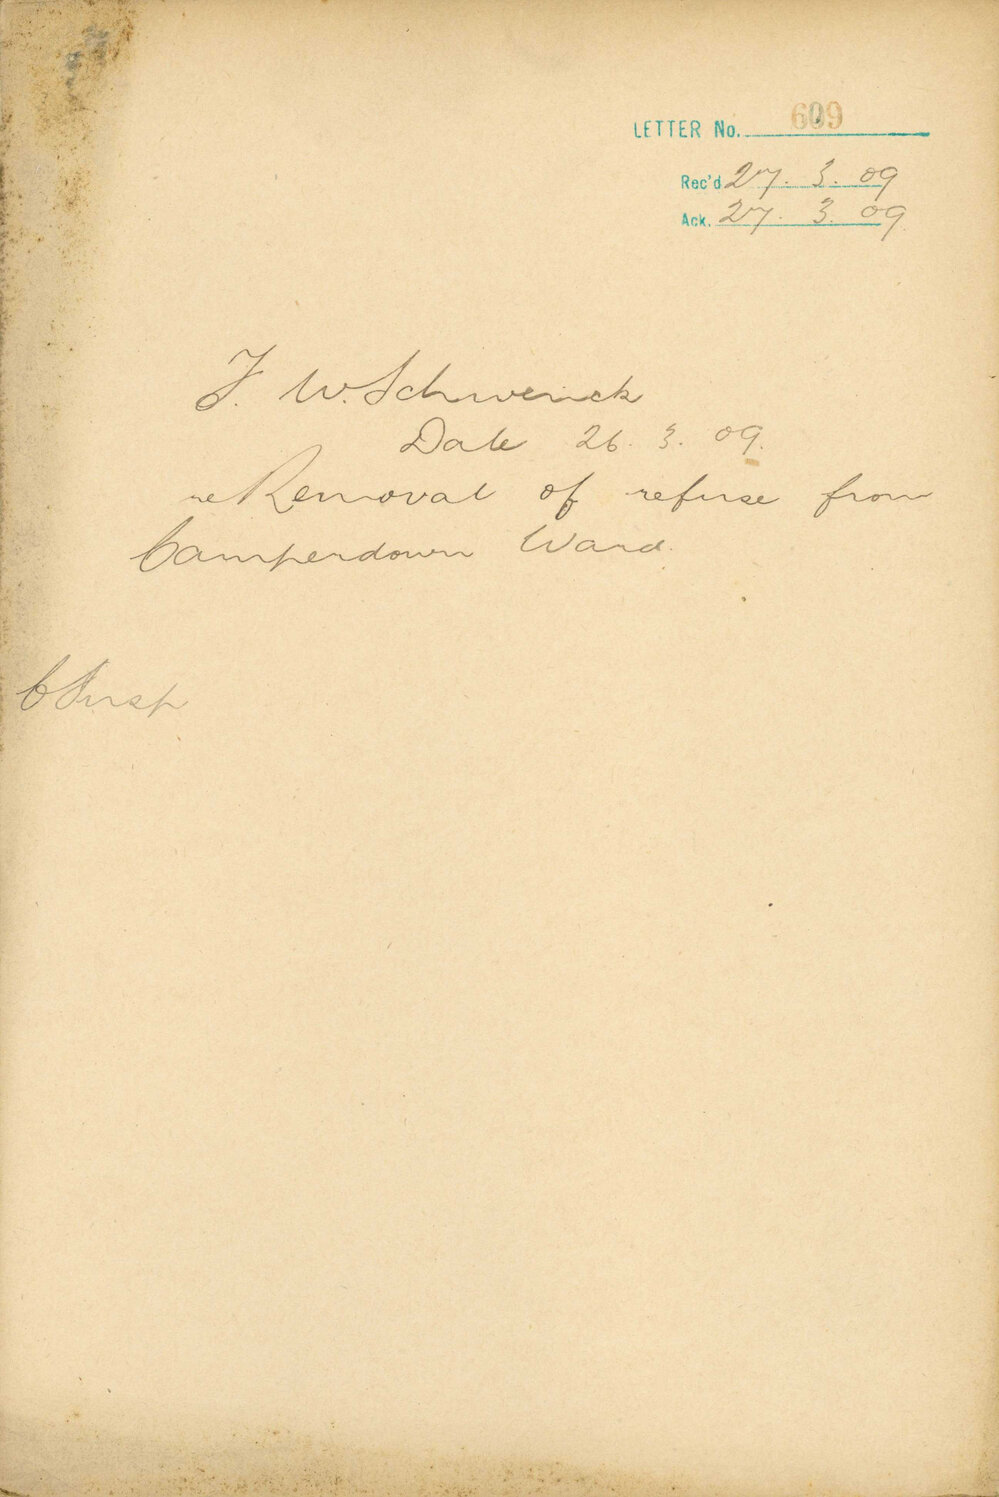 LETTER No. 609
Rec'd 27. 3. 09
Ack. 27. 3. 09
F. W. Schwenck
Date 26. 3. 09.
re Removal of refuse from
Camperdown Ward.
C Insp